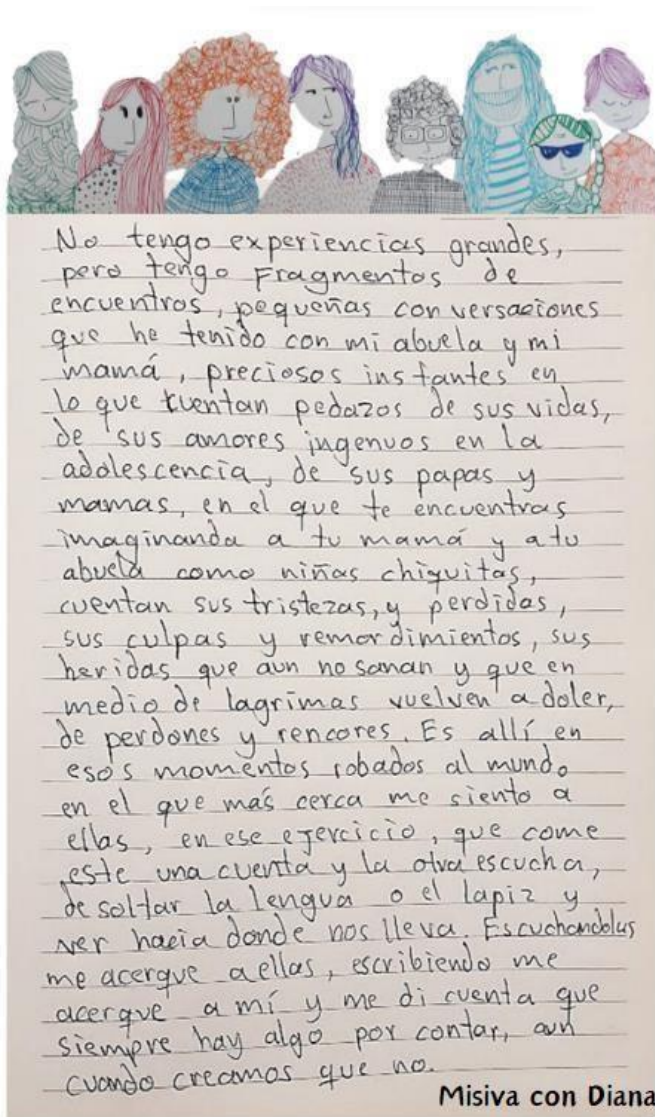 No tengo experiencias grandes,
pero tengo Fragmentos de
encuentros, pequeñas conversaciones
que he tenido con mi abuela y mi
mamá, preciosos instantes en
lo que cuentan pedazos de sus vidas,
de sus amores ingenuos en la
adolescencia, de sus papas y
mamas, en el que te encuentras
imaginanda a tu mamá y a tu
abuela como niñas chiquitas,
cuentan sus tristezas, y perdidas,
sus culpas y remordimientos, sus
heridas que aun no sanan y que en
medio de lagrimas vuelven a doler,
de perdones y rencores. Es allí en
esos momentos robados al mundo
en el que más cerca me siento a
ellas, en ese ejercicio, que come
este una cuenta y la otra escucha,
de soltar la lengua o el lapiz y
ver hacia donde nos lleva. Escuchandolas
me acerque a ellas, escribiendo me
acerque a mí y me di cuenta que
siempre hay algo por contar, aun
cuando creamos que no.
Misiva con Diana